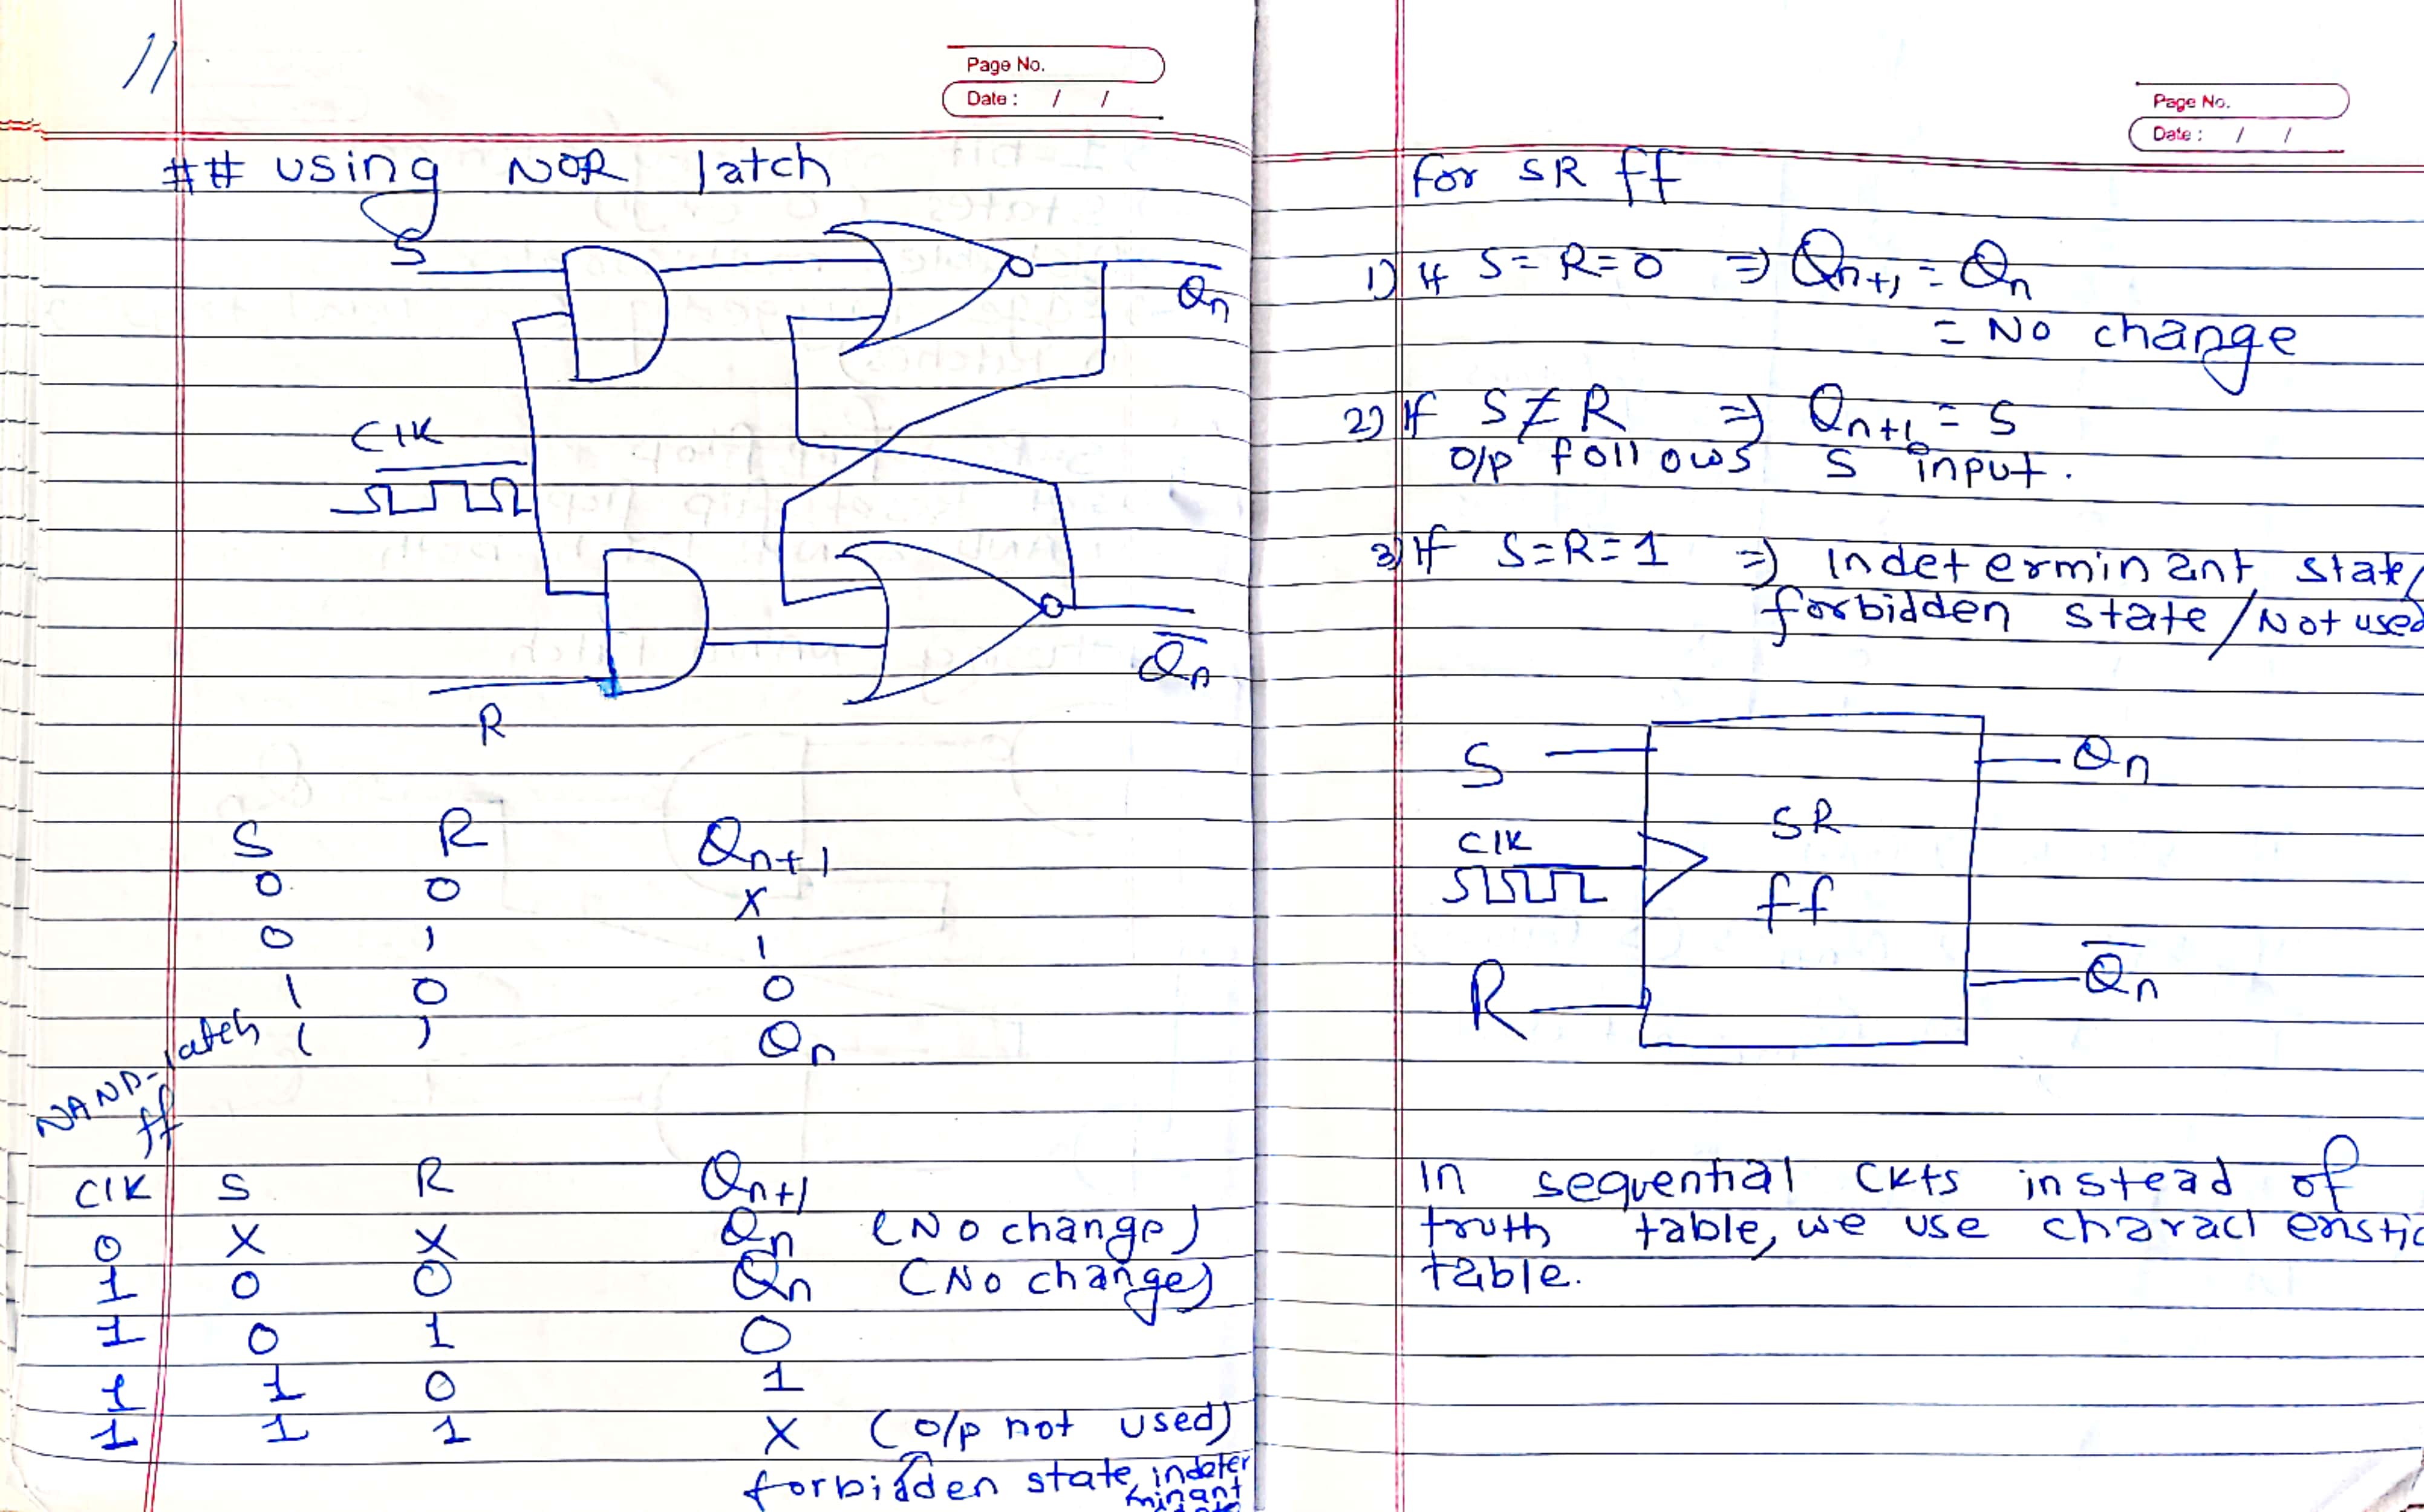 11
Page No.
Date : / /
## using NOR latch
S
Qn
CIK
Q̅n
R
S R Qn+1
0 0 X
0 1 1
1 0 0
1 1 Qn
NAND-latch
ff
CIK S R Qn+1
0 X X Qn (No change)
1 0 0 Qn (No change)
1 0 1 0
1 1 0 1
1 1 1 X (o/p not used)
forbidden state, indeter
minant
Page No.
Date : / /
for SR ff
1) If S=R=0 ⇒ Qn+1 = Qn
= No change
2) If S≠R ⇒ Qn+1 = S
o/p follows S input.
3) If S=R=1 ⇒ Indeterminant state/
forbidden state/Not used
S Qn
SR
CIK
ff
R Q̅n
In sequential ckts instead of
truth table, we use characteristic
table.